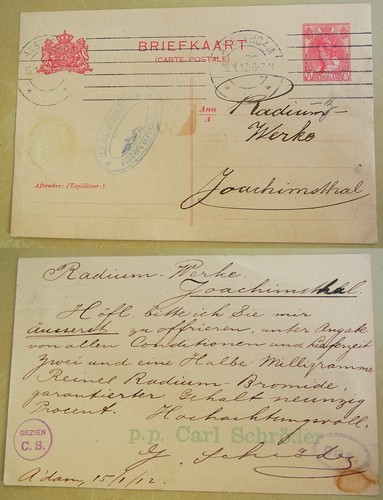 BRIEFKAART
(CARTE POSTALE)
Aan
A
Radium-
Werke
Joachimsthal
Afzender: (Expéditeur:)
Radium-Werke.
Joachimsthal.
Höfl. bitte ich Sie mir
äusserst zu offrieren, unter Angabe
von allen Conditionen und Lieferzeit
Zwei und eine Halbe Milligramme
Reines Radium-Bromide,
garantierter Gehalt neunzig
Procent. Hochachtungsvoll.
p.p. Carl Schröder
GEZIEN
C. S.
A'dam, 15/1/12.